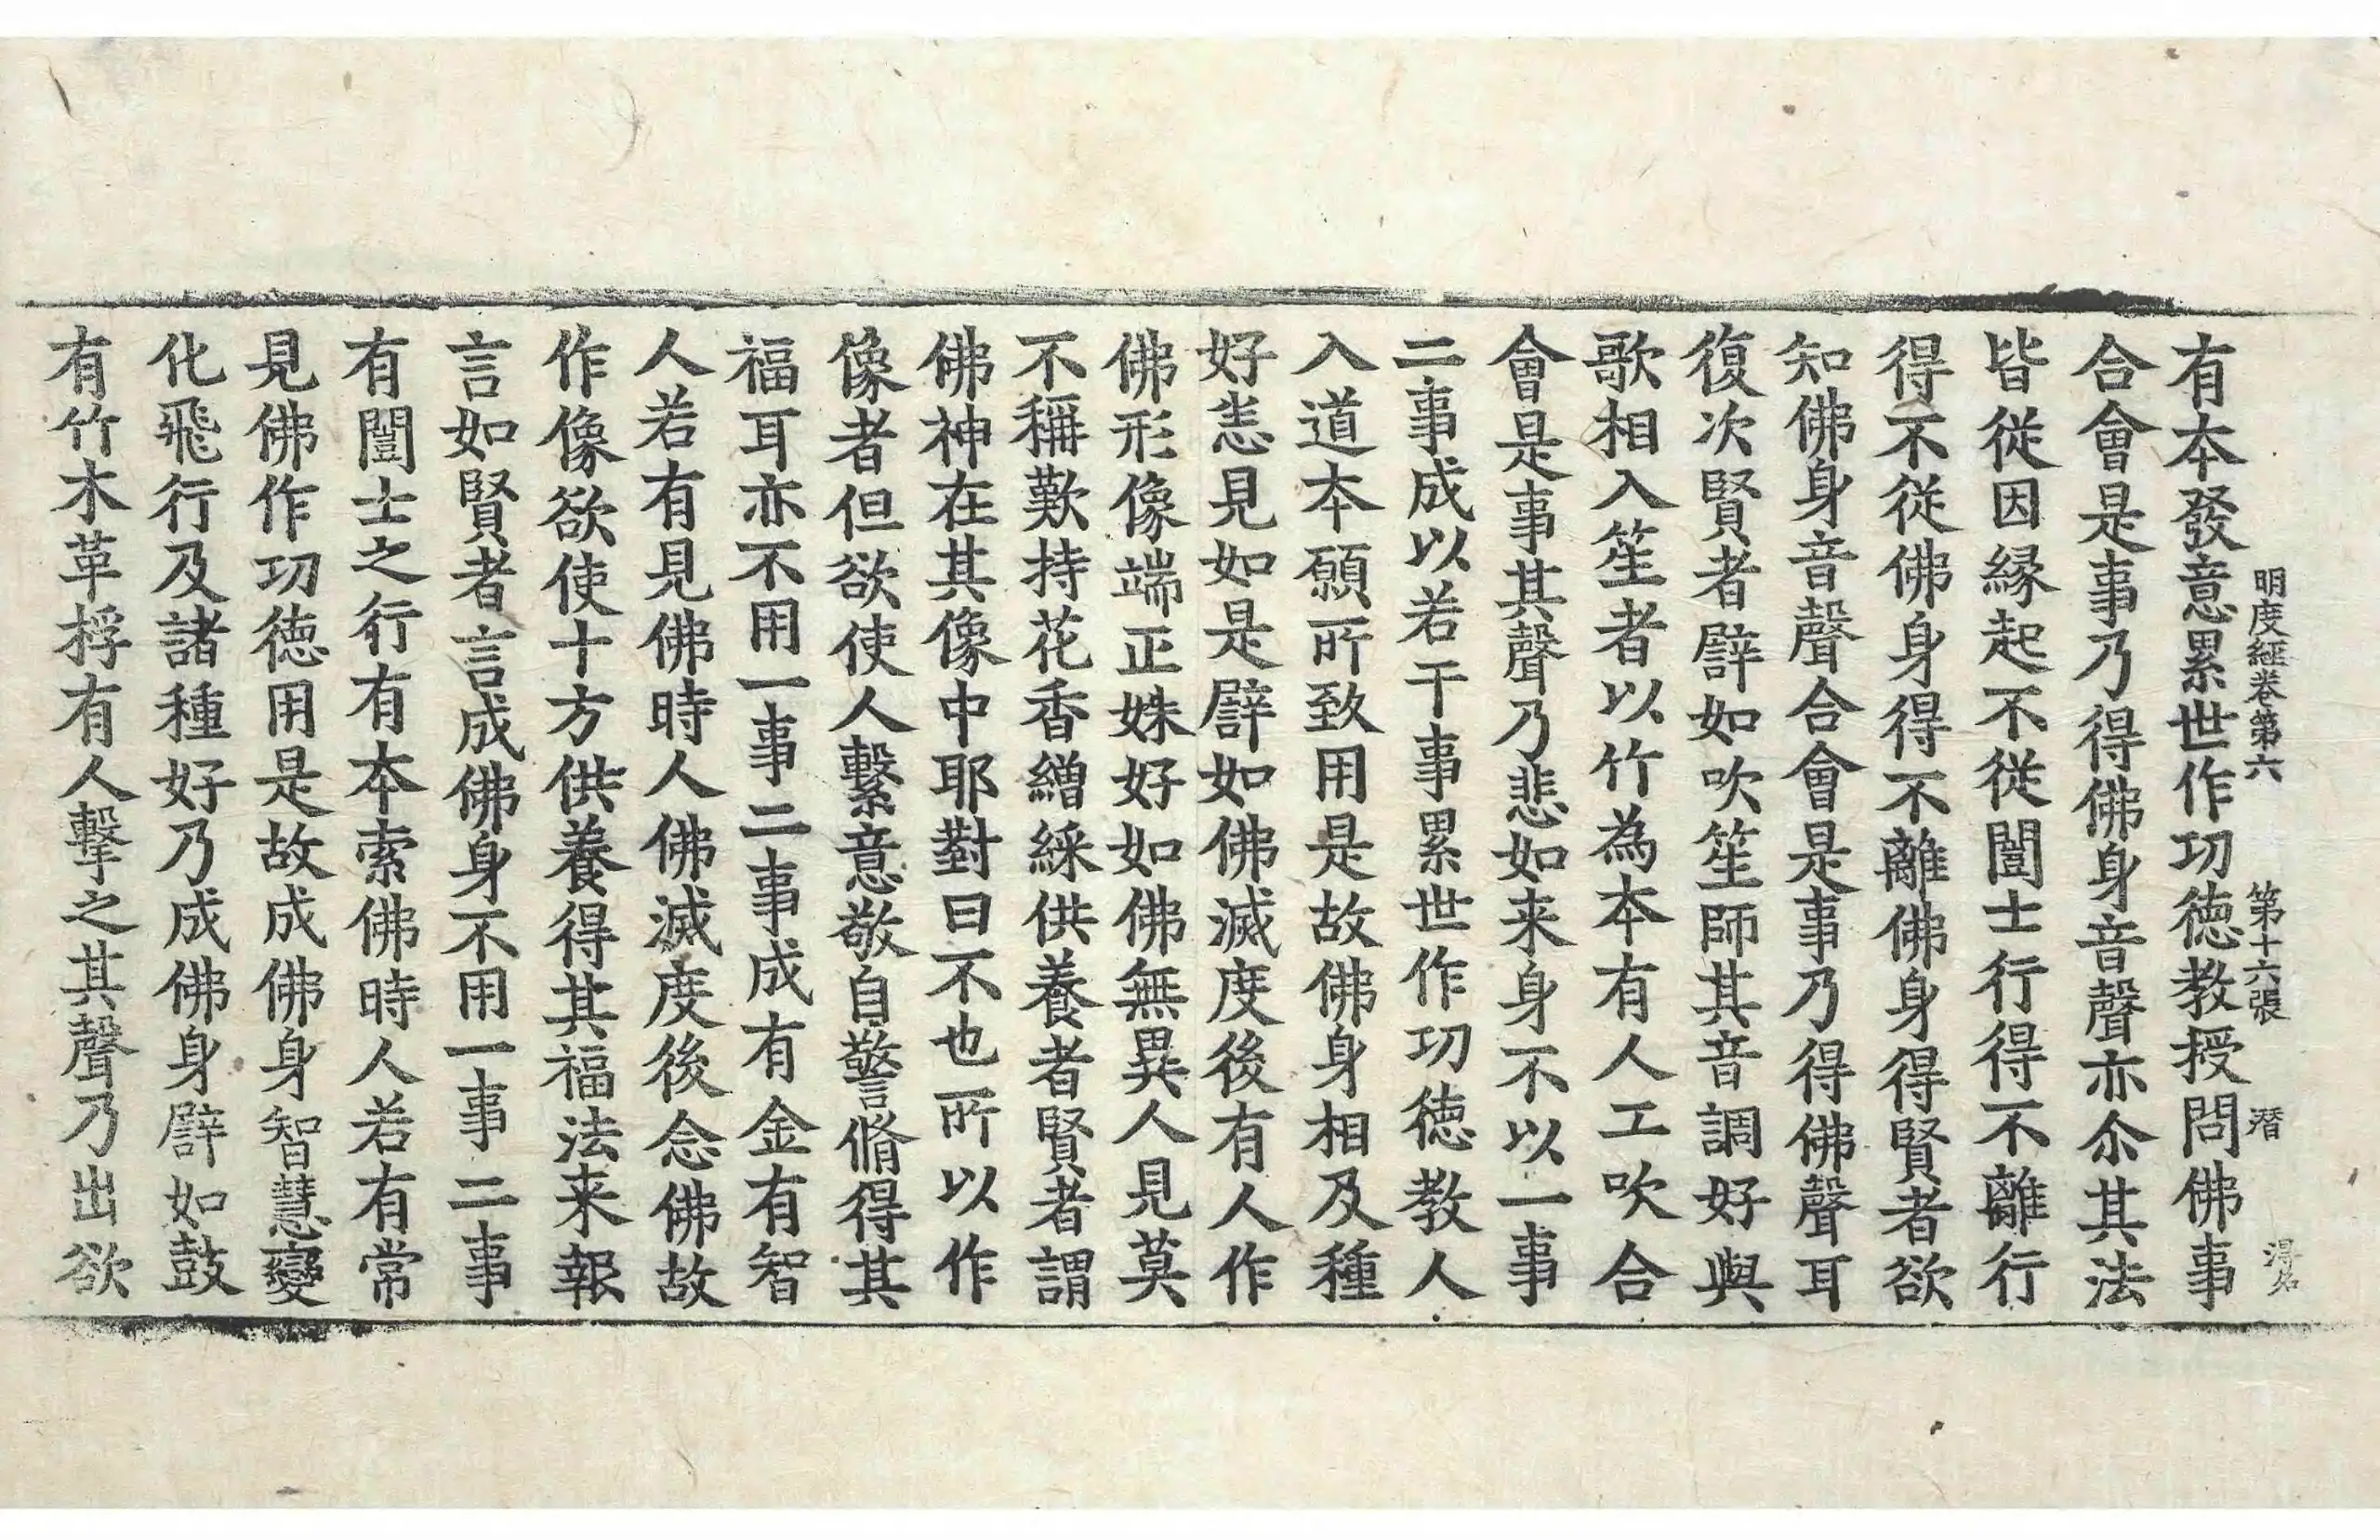 明度経卷第六　第十六張　潜
有本發意累世作功徳教授問佛事
合會是事乃得佛身音聲亦尒其法
皆從因縁起不從闓士行得不離行
得不從佛身得不離佛身得賢者欲
知佛身音聲合會是事乃得佛聲耳
復次賢者譬如吹笙師其音調好與
歌相入笙者以竹為本有人工吹合
會是事其聲乃悲如来身不以一事
二事成以若干事累世作功徳教人
入道本願所致用是故佛身相及種
好恙見如是譬如佛滅度後有人作
佛形像端正姝好如佛無異人見莫
不稱歎持花香繒綵供養者賢者謂
佛神在其像中耶對曰不也所以作
像者但欲使人繫意敬自警脩得其
福耳亦不用一事二事成有金有智
人若有見佛時人佛滅度後念佛故
作像欲使十方供養得其福法来報
言如賢者言成佛身不用一事二事
有闓士之行有本索佛時人若有常
見佛作功徳用是故成佛身智慧變
化飛行及諸種好乃成佛身譬如鼓
有竹木革桴有人擊之其聲乃出欲